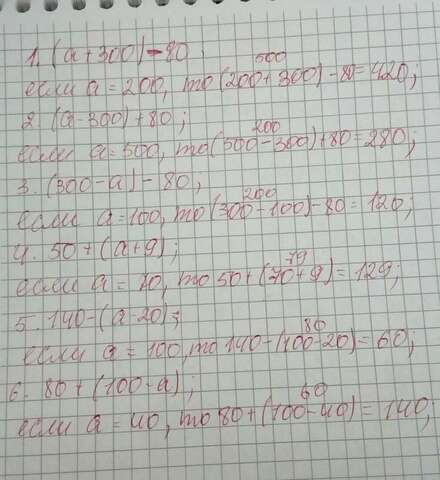 1. (а+300)-80;
500
если а=200, то (200+300)-80=420;
2. (а-300)+80;
200
если а=500, то (500-300)+80=280;
3. (300-а)-80;
200
если а=100, то (300-100)-80=120;
4. 50+(а+9);
79
если а=70, то 50+(70+9)=129;
5. 140-(а-20);
80
если а=100, то 140-(100-20)=60;
6. 80+(100-а);
60
если а=40, то 80+(100-40)=140;